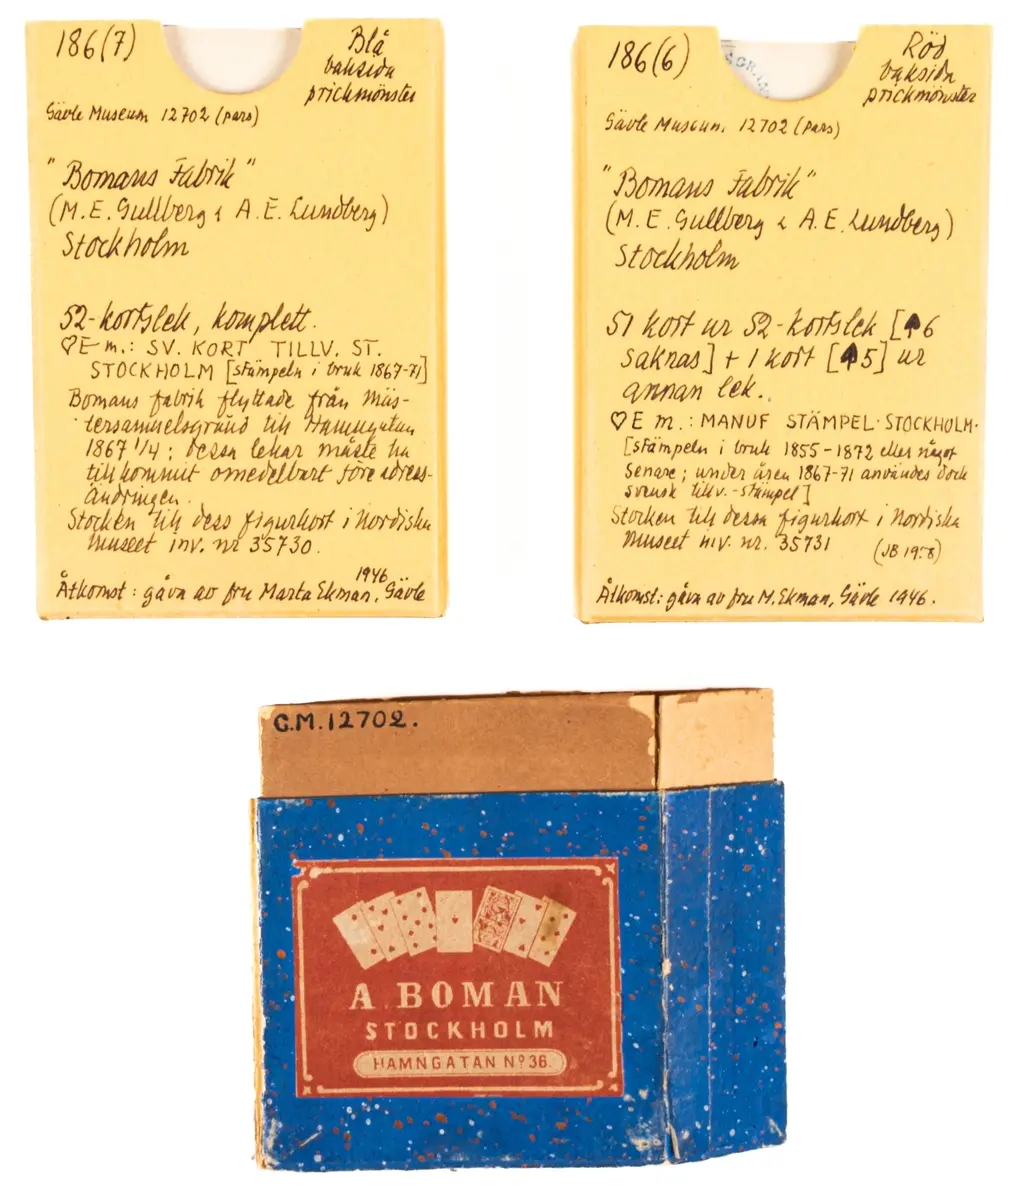 186(7)
Blå
baksida
prickmönster
Gävle Museum 12702 (pars)
"Bomans Fabrik"
(M.E. Gullberg & A.E. Lundberg)
Stockholm
52-kortslek, komplett.
♡E m.: SV. KORT TILLV. ST.
STOCKHOLM [stämpeln i bruk 1867-71]
Bomans fabrik flyttade från Mäs-
tersamuelsgränd till Hamngatan
1867 1/4; dessa lekar måste ha
tillkommit omedelbart före adress-
ändringen.
Stocken till dess figurkort i Nordiska
Museet inv. nr 35730.
Åtkomst: gåva av fru Marta Ekman, Gävle
1946
186(6)
Röd
baksida
prickmönster
Gävle Museum, 12702 (pars)
"Bomans Fabrik"
(M.E. Gullberg & A.E. Lundberg)
Stockholm
51 kort ur 52-kortslek [♠6
saknas] + 1 kort [♠5] ur
annan lek.
♡E m.: MANUF STÄMPEL·STOCKHOLM·
[stämpeln i bruk 1855-1872 eller något
senare; under åren 1867-71 användes dock
svensk tillv.-stämpel]
Stocken till dessa figurkort i Nordiska
Museet inv. nr. 35731
Åtkomst: gåva av fru M. Ekman, Gävle 1946.
G.M.12702.
A. BOMAN
STOCKHOLM
HAMNGATAN Nº 36.